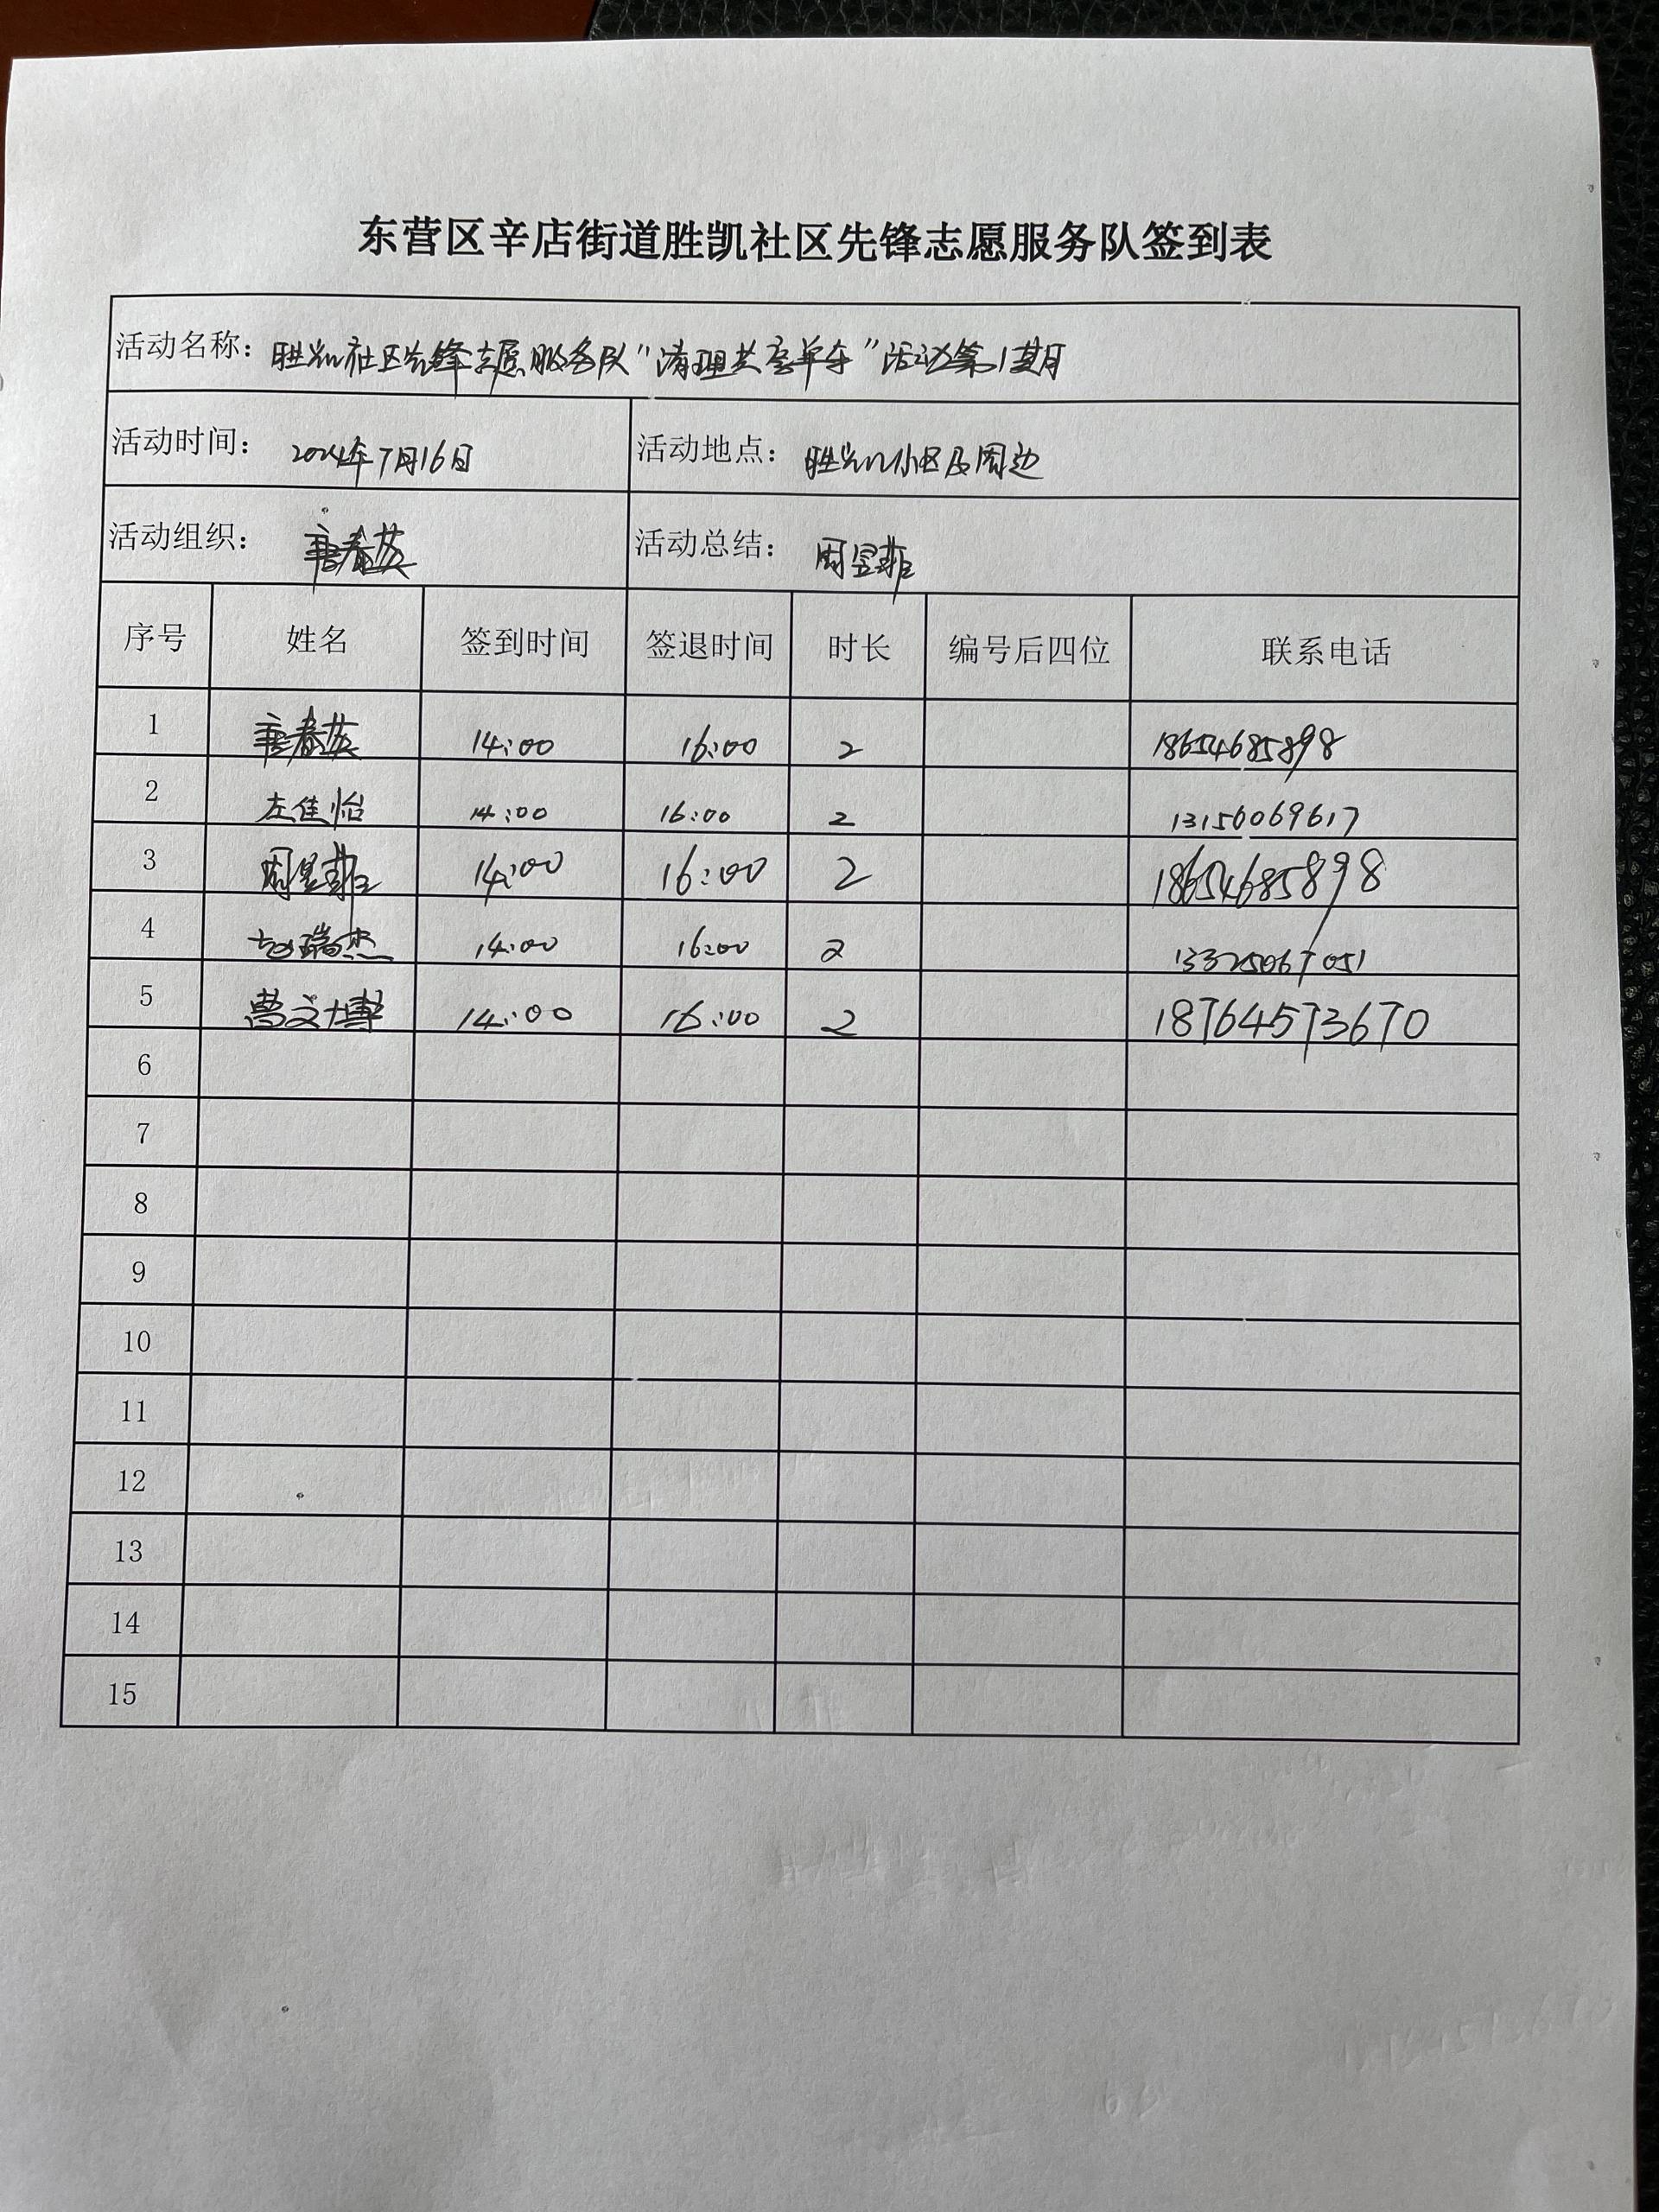 东营区辛店街道胜凯社区先锋志愿服务队签到表
活动名称：胜凯社区先锋志愿服务队“清理共享单车”活动第1期
活动时间：2024年7月16日 活动地点：胜凯小区及周边
活动组织：唐春英 活动总结：周昱菲
序号 姓名 签到时间 签退时间 时长 编号后四位 联系电话
1 唐春英 14:00 16:00 2 18654685898
2 左佳怡 14:00 16:00 2 13156069617
3 周昱菲 14:00 16:00 2 18654685898
4 瑞杰 14:00 16:00 2 13325067051
5 曹文博 14:00 16:00 2 18764573670
6
7
8
9
10
11
12
13
14
15